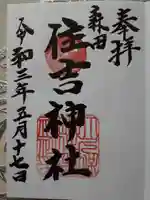 奉拝
森田
住吉神社
令和三年五月十七日